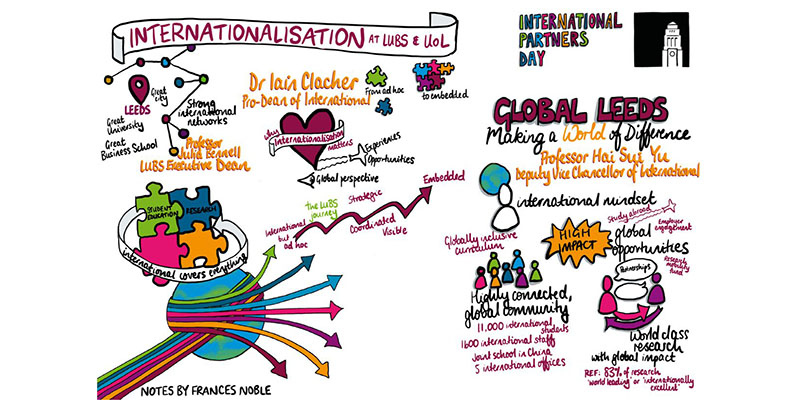 INTERNATIONALISATION AT LUBS & UoL
INTERNATIONAL
PARTNERS
DAY
Dr Iain Clacher
Pro-Dean of International
From ad hoc
to embedded
LEEDS
Great
city
Great
University
Great
Business School
Strong
international
networks
Professor
Julia Bennell
LUBS Executive Dean
why
Internationalisation
matters
Experiences
Opportunities
Global perspective
STUDENT
EDUCATION
RESEARCH
international covers everything
The LUBS
journey
International
but
ad hoc
Strategic
Coordinated
Visible
Embedded
NOTES BY FRANCES NOBLE
GLOBAL LEEDS
Making a World of Difference
Professor Hai Sui Yu
Deputy Vice Chancellor of International
international mindset
Globally inclusive
curriculum
HIGH
IMPACT
Study abroad
Employer
engagement
global
opportunities
Research
mobility
fund
Highly connected,
global community
11,000 international
students
1600 international staff
Joint school in China
5 international offices
Partnerships
World class
research
with global impact
REF: 83% of research
'world leading' or 'internationally
excellent'